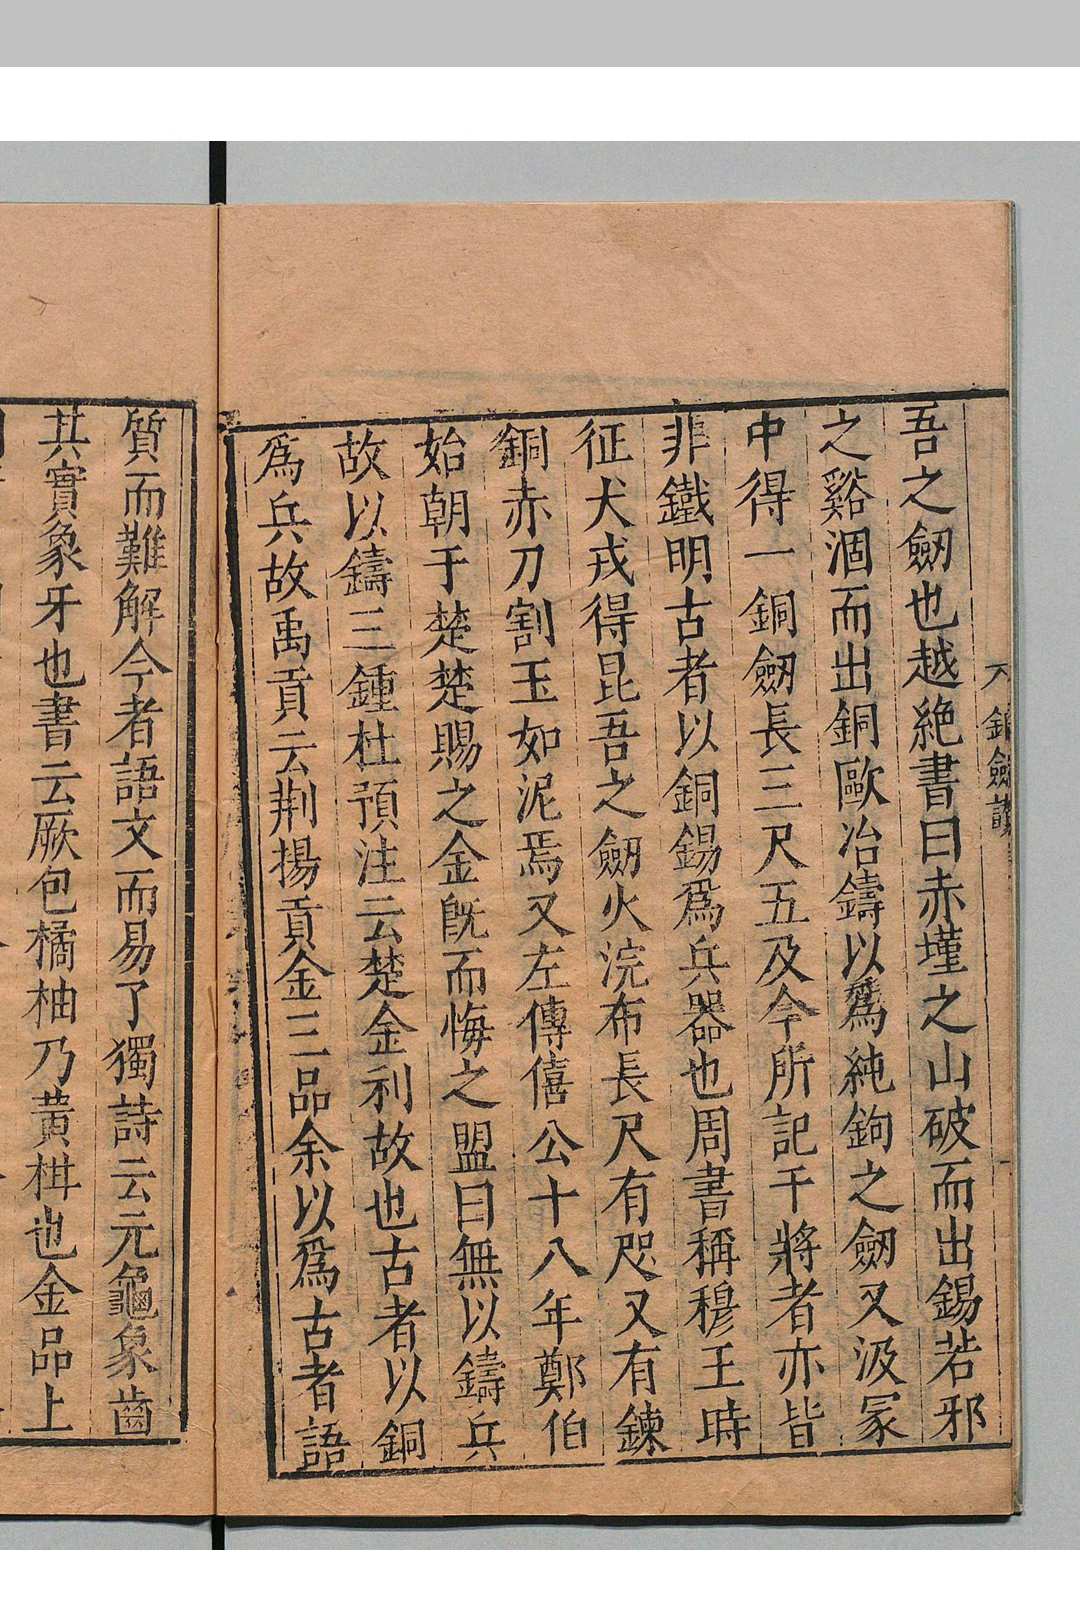 銅劍讚
吾之劒也越絶書曰赤堇之山破而出錫若邪
之谿涸而出銅歐冶鑄以爲純鉤之劒又汲冢
中得一銅劒長三尺五及今所記干將者亦皆
非鐵明古者以銅錫爲兵器也周書稱穆王時
征犬戎得昆吾之劒火浣布長尺有咫又有鍊
銅赤刀割玉如泥焉又左傳僖公十八年鄭伯
始朝于楚楚賜之金旣而悔之盟曰無以鑄兵
故以鑄三鍾杜預注云楚金利故也古者以銅
爲兵故禹貢云荆揚貢金三品余以爲古者語
質而難解今者語文而易了獨詩云元龜象齒
其實象牙也書云厥包橘柚乃黃柑也金品上